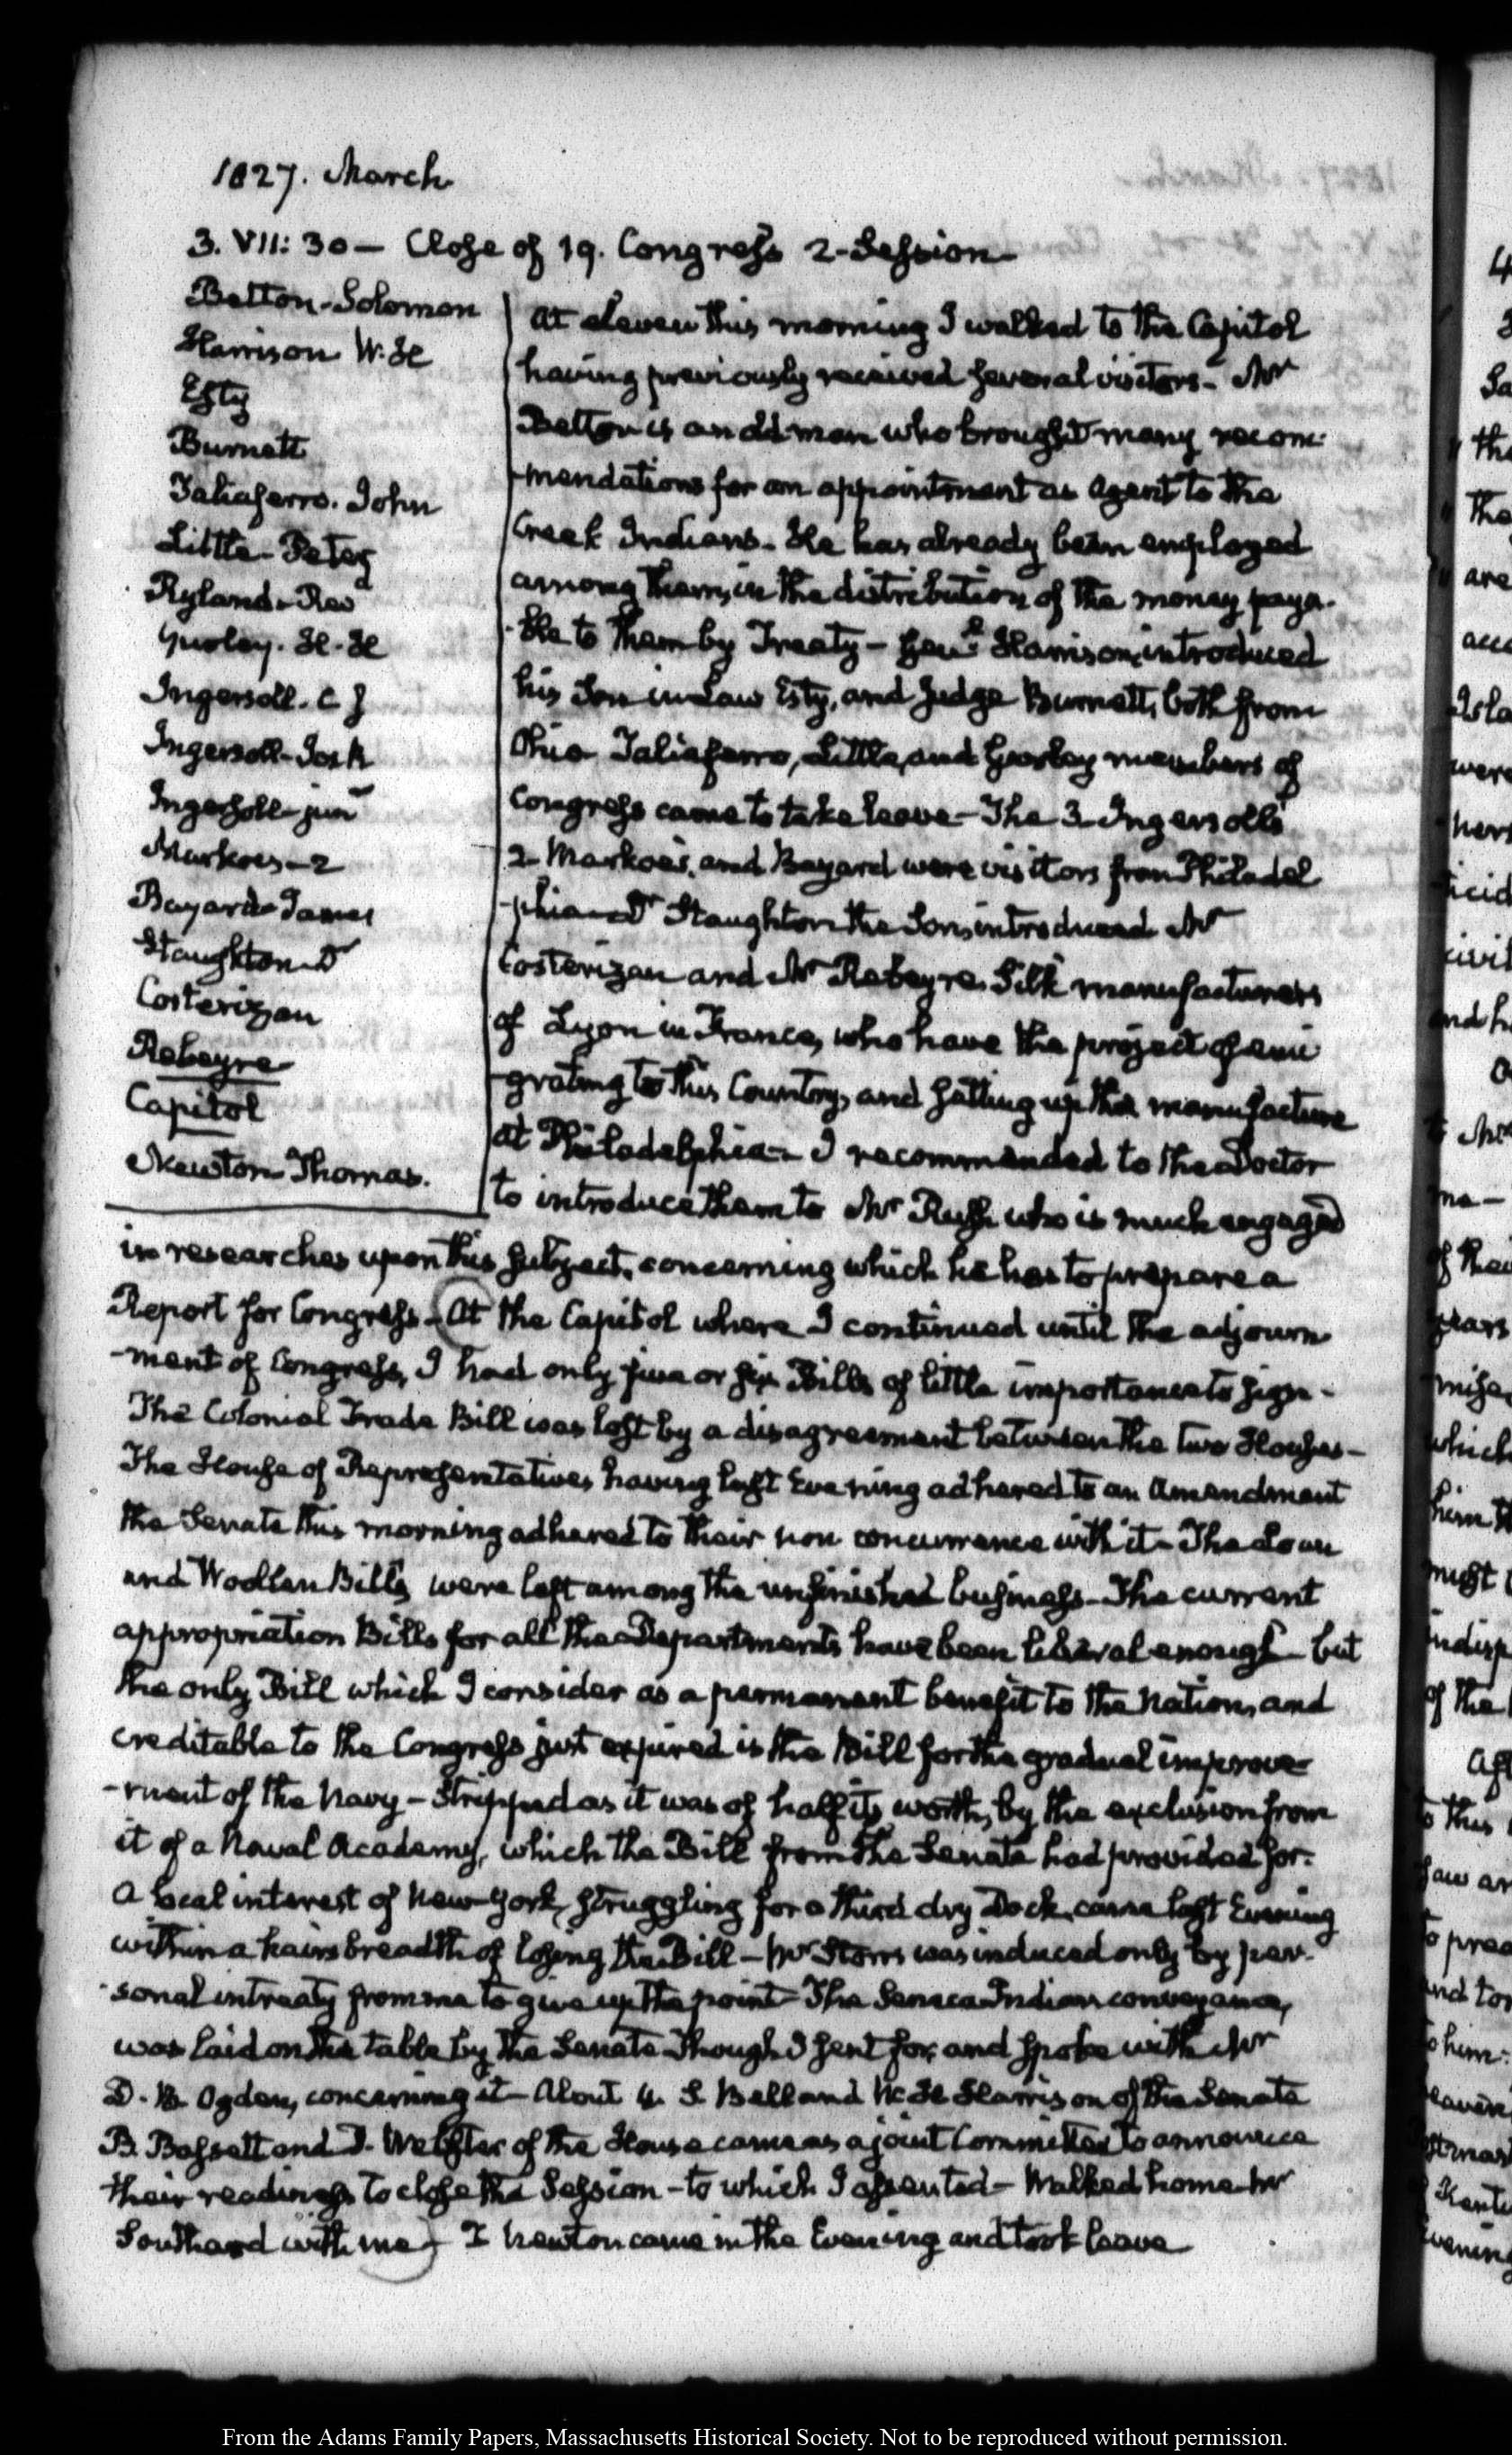 1827. March
3. VII: 30 — Close of 19. Congress 2-Session
Betton-Solomon
Harrison W. H
Esty
Burnett
Taliaferro. John
Little-Peter
Ryland-Rev
Gurley. H. H
Ingersoll. C J
Ingersoll-Jos. R
Ingersoll-junr
Markoes-2
Bayard-James
Staughton Dr
Costerizan
Rebeyre
Capitol
Newton Thomas.
At eleven this morning I walked to the Capitol
having previously received several visitors- Mr
Betton is an old man who brought many recom-
-mendations for an appointment as Agent to the
Creek Indians- He has already been employed
among them, in the distribution of the money paya-
-ble to them by Treaty- Genl Harrison introduced
his Son in Law Esty, and Judge Burnett, both from
Ohio Taliaferro, Little, and Gurley members of
Congress came to take leave- The 3 Ingersolls
2 Markoe's, and Bayard were visitors from Philadel
-phia- Dr Staughton the Son, introduced Mr
Costerizan and Mr Rebeyre, Silk manufacturers
of Lyon in France, who have the project of emi
-grating to this Country, and setting up the manufacture
at Philadelphia- I recommended to the Doctor
to introduce them to Mr Rush who is much engaged
in researches upon this subject, concerning which he has to prepare a
Report for Congress- At the Capitol where I continued until the adjourn
-ment of Congress, I had only five or six Bills of little importance to sign-
The Colonial Trade Bill was lost by a disagreement between the two Houses-
The House of Representatives having last Evening adhered to an Amendment
the Senate this morning adhered to their non concurrence with it- The Loan
and Woollen Bills, were left among the unfinished business- The current
appropriation Bills for all the Departments have been liberal enough- but
the only Bill which I consider as a permanent benefit to the Nation, and
creditable to the Congress just expired is the Bill for the gradual improve-
-ment of the Navy- Stripped as it was of half its worth, by the exclusion from
it of a Naval Academy, which the Bill from the Senate had provided for.
A local interest of New-York, struggling for a third dry Dock, came last Evening
within a hairsbreadth of losing the Bill- Mr Storrs was induced only by per-
-sonal intreaty from me to give up the point- The Seneca Indian conveyance,
was laid on the table by the Senate though I sent for, and spoke with Mr
D. B. Ogden, concerning it- About 4. S Bell and W. H Harrison of the Senate
B. Bassett and D. Webster of the House came as a joint Committee to announce
their readiness to close the Session- to which I assented- Walked home- Mr
Southard with me- T Newton came in the Evening and took leave
From the Adams Family Papers, Massachusetts Historical Society. Not to be reproduced without permission.